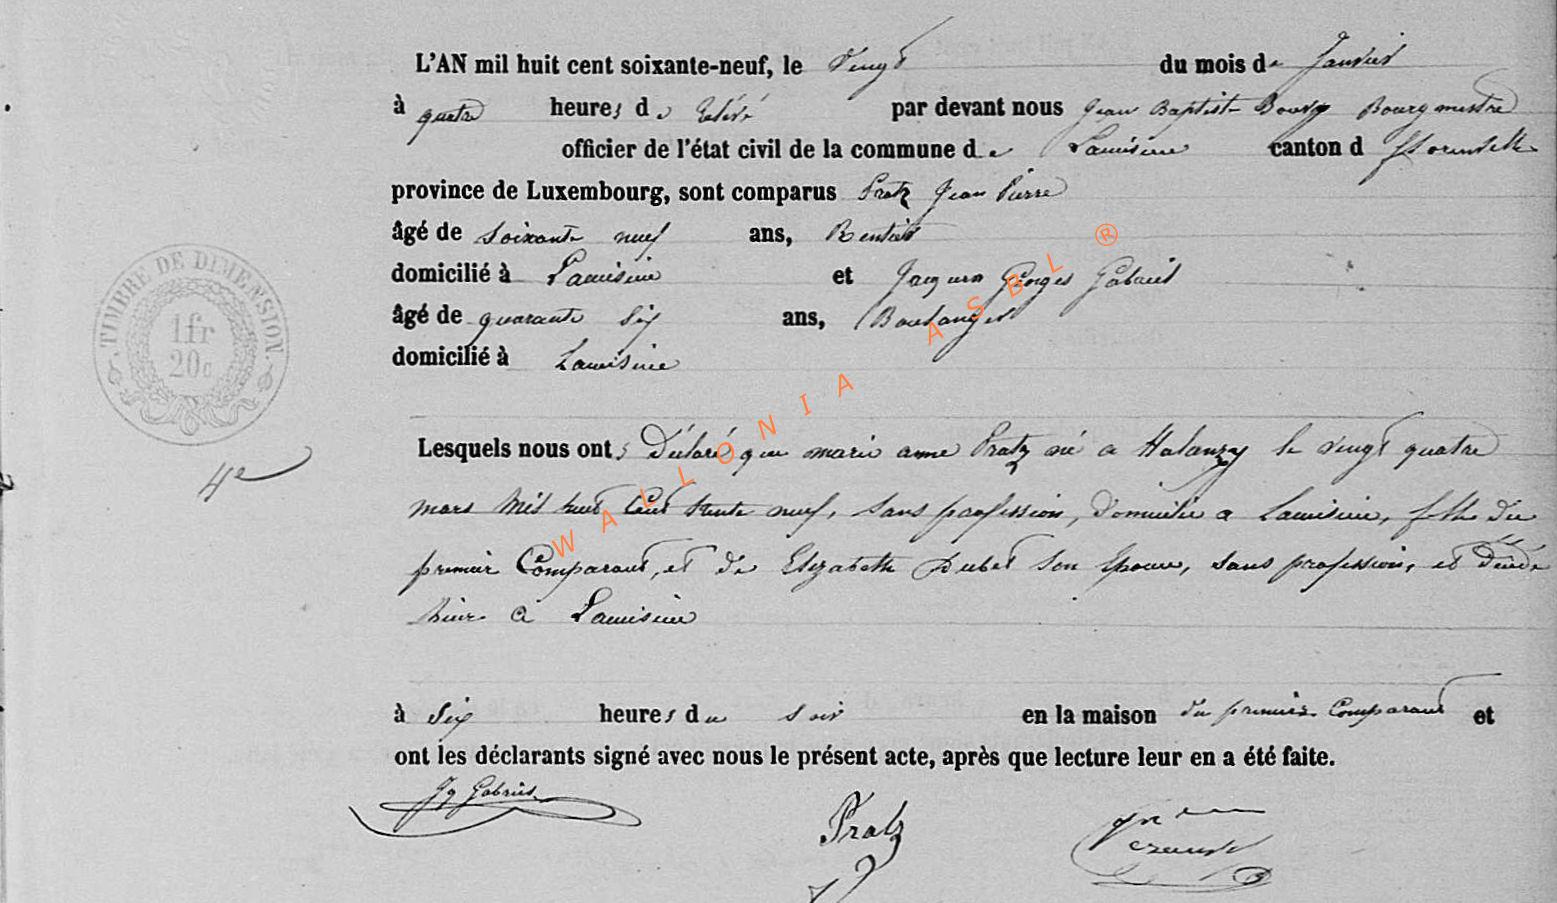 L'AN mil huit cent soixante-neuf, le Vingt du mois de Janvier
à quatre heures de par devant nous Jean Baptiste Bourg Bourgmestre
officier de l'état civil de la commune de canton d
province de Luxembourg, sont comparus Pratz Jean Pierre
âgé de Soixante neuf ans, Rentier
domicilié à et Georges Gabriel
âgé de quarante Six ans, Boulanger
domicilié à
Lesquels nous ont Déclaré que marie anne Pratz né a Halanzy le vingt quatre
mars Mil huit Cent trente neuf, Sans profession, domicilié a fille du
premier Comparant, et de Elizabeth son Epouse, sans profession, et
hier a
à Six heures du soir en la maison du premier Comparant et
ont les déclarants signé avec nous le présent acte, après que lecture leur en a été faite.
Jq Gabriel
Pratz
TIMBRE DE DIMENSION.
1fr
20c
4e
WALLONIA ASBL ®